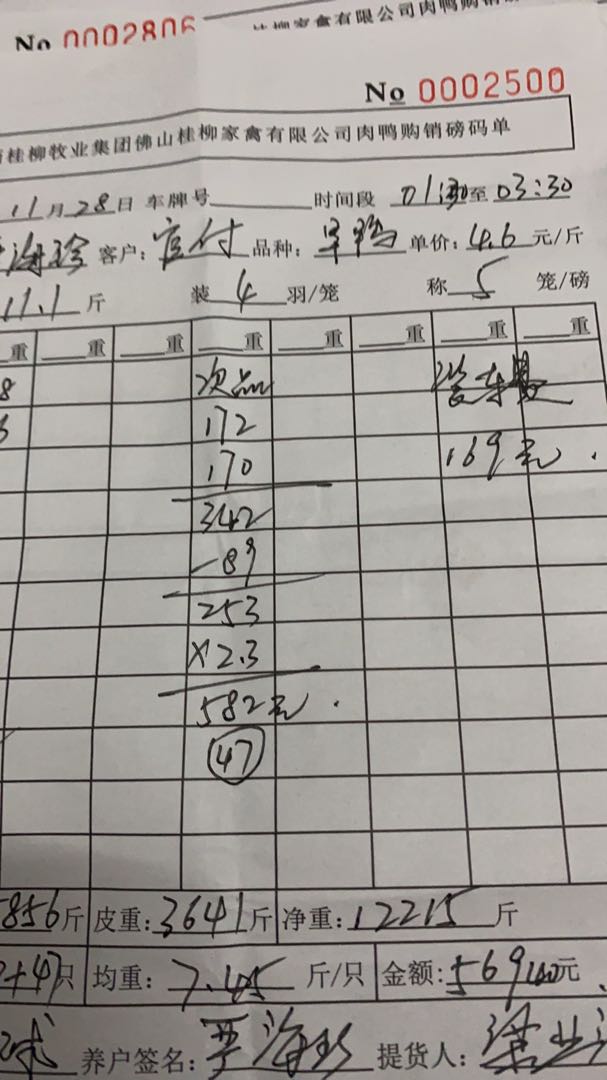 No 0002806
家禽有限公司肉鸭购销
No 0002500
桂柳牧业集团佛山桂柳家禽有限公司肉鸭购销磅码单
11月28日 车牌号 时间段 至 03:30
海珍 客户: 品种: 单价: 4.6 元/斤
11.1 斤 装 4 羽/笼 称 5 笼/磅
重 重 重 重 重 重 重
8 次品
172
170 169元.
342
-89
253
×2.3
582元.
47
856斤 皮重: 3641斤 净重: 12215 斤
+47只 均重: 斤/只 金额: 元
养户签名: 严海珍 提货人: